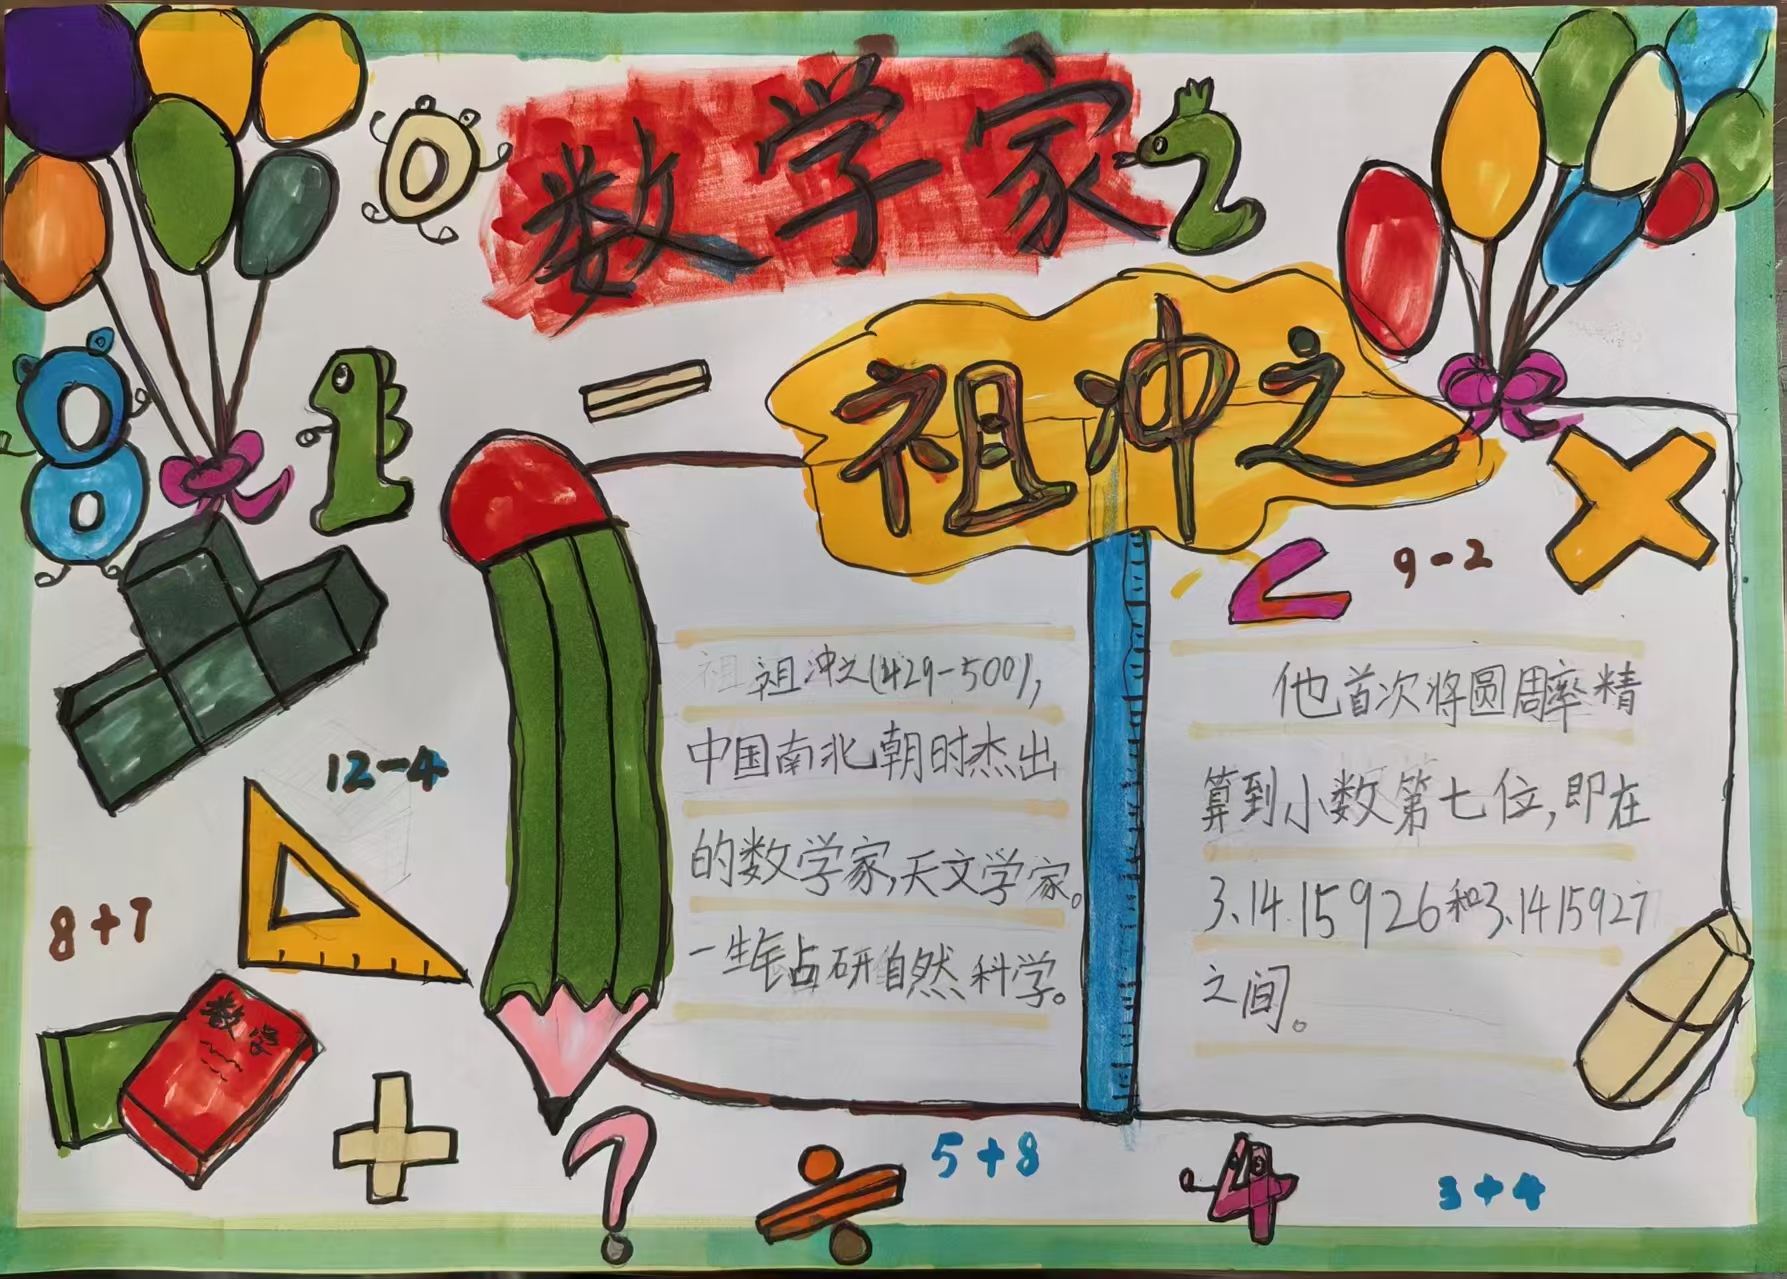 数学家
祖冲之
9-2
祖冲之(429-500),
中国南北朝时杰出
的数学家,天文学家。
一生钻研自然科学。
他首次将圆周率精
算到小数第七位,即在
3.1415926和3.1415927
之间。
12-4
8+7
数学
5+8
3+4